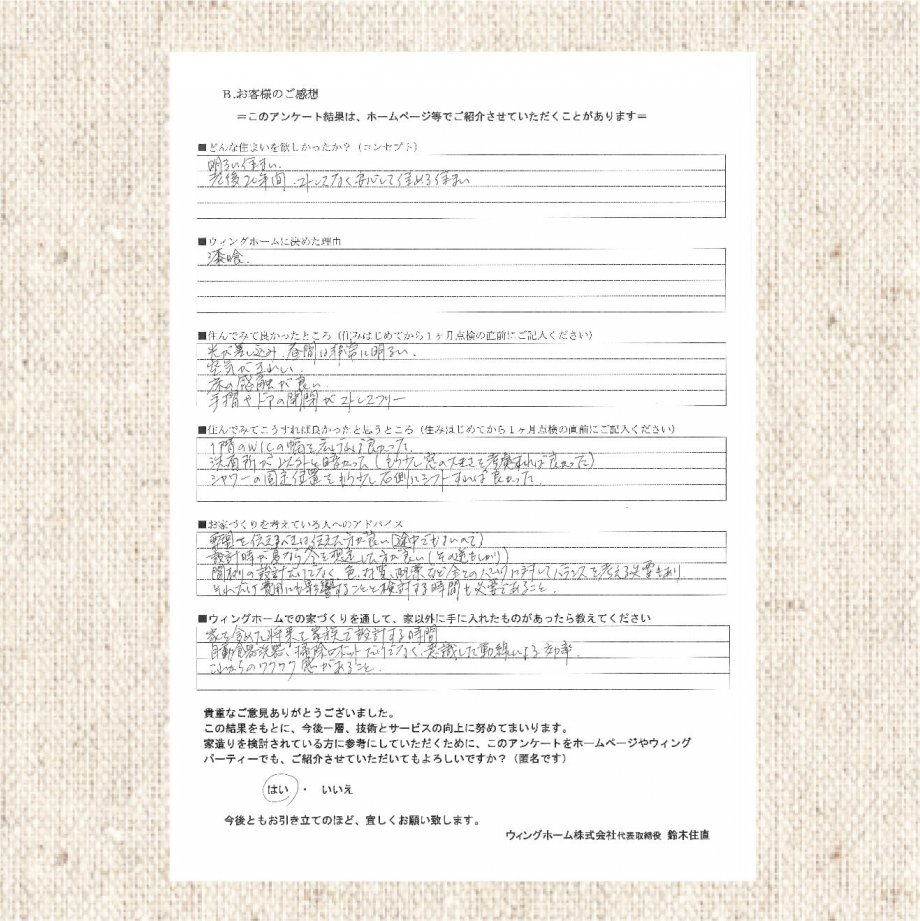 B.お客様のご感想
＝このアンケート結果は、ホームページ等でご紹介させていただくことがあります＝
■どんな住まいを欲しかったか？（コンセプト）
明るい住まい、
老後20年間、ストレスなく安心して住める住まい
■ウィングホームに決めた理由
漆喰、
■住んでみて良かったところ（住みはじめてから１ヶ月点検の直前にご記入ください）
光が差し込み、昼間は非常に明るい、
空気がきれい、
床の感触が良い、
手摺やドアの開閉がストレスフリー
■住んでみてこうすれば良かったと思うところ（住みはじめてから１ヶ月点検の直前にご記入ください）
1階のWICの幅を広げれば良かった、
洗面所が少々暗かった（もう少し窓の大きさを考慮すれば良かった）
シャワーの固定位置をもう少し右側にシフトすれば良かった、
■お家づくりを考えている人へのアドバイス
要望を伝えるべきは伝えた方が良い（途中でもよいので）
設計時が夏なら冬を想定した方が良い（その逆もしかり）
間取りの設計だけでなく、色、材質、配策など全てのバランスを考える必要もあり
それだけ費用にも影響することと検討する時間も必要であること、
■ウィングホームでの家づくりを通して、家以外に手に入れたものがあったら教えてください
家を含めた将来を家族で設計する時間
自動食器洗器、掃除ロボットだけでなく、意識した動線による効率、
これからのワクワク感があること、
貴重なご意見ありがとうございました。
この結果をもとに、今後一層、技術とサービスの向上に努めてまいります。
家造りを検討されている方に参考にしていただくために、このアンケートをホームページやウィング
パーティーでも、ご紹介させていただいてもよろしいですか？（匿名です）
はい ・ いいえ
今後ともお引き立てのほど、宜しくお願い致します。
ウィングホーム株式会社代表取締役 鈴木住直